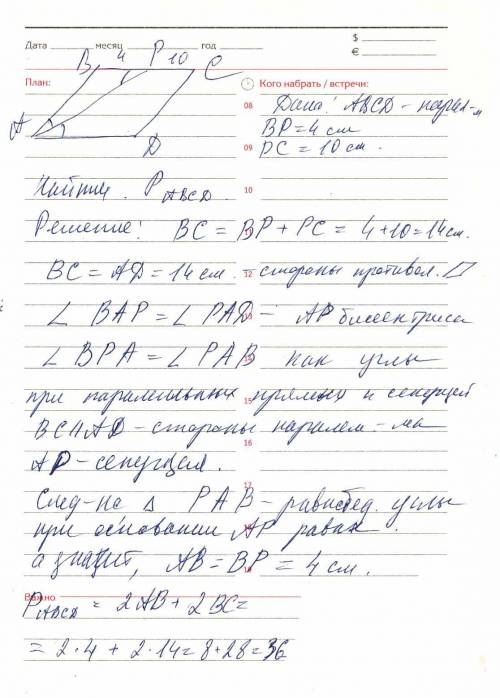 $
Дата месяц год €
B 4 P 10 C
План: Кого набрать / встречи:
08 Дано: ABCD – парал-м
A BP = 4 см
D 09 PC = 10 см.
Найти. P ABCD 10
Решение: BC = BP + PC = 4+10=14см.
BC = AD = 14 см. 12 стороны противол. ▱
∠ BAP = ∠ PAD – AP биссектриса
∠ BPA = ∠ PAB как углы
при паралельных прямых и секущей
15
BC || AD – стороны паралем – ма
16
AP – секущая.
17
След-но △ PAB – равнобед. углы
при основании AP равны.
а значит, AB = BP = 4 см.
Важно
P ABCD = 2AB + 2BC =
= 2·4 + 2·14 = 8+28=36